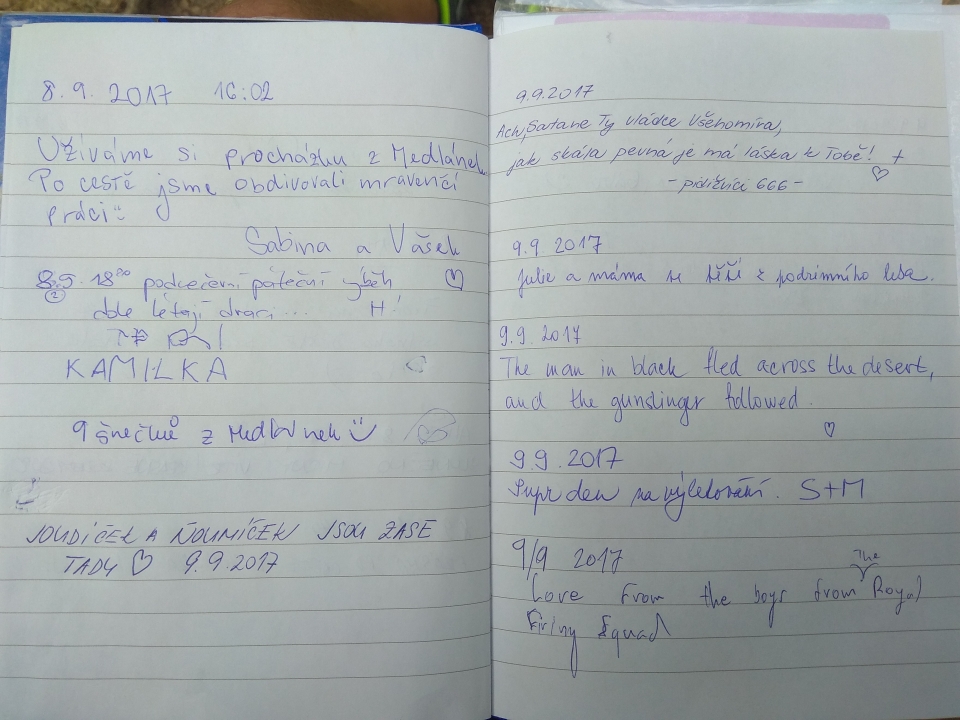 8.9.2017 16:02
Užíváme si procházku z Medlánek
Po cestě jsme obdivovali mravenčí
práci
Sabina a Vášek
18⁰⁰ podvečerní páteční výběh
létají draci... H!
KAMILKA
9 šnečků z Medlánek
JOUDÍČEK A ŇOUMÍČEK JSOU ZASE
TADY ♡ 9.9.2017
9.9.2017
Ach, Satane Ty vládce Všehomíra,
jak skála pevná je má láska k Tobě! +
- pidižvíci 666 -
9.9 2017
Julie a máma se těší z podzimního lesa.
9.9. 2017
The man in black fled across the desert,
and the gunslinger followed.
9.9.2017
Supr den na výletování. S+M
9/9 2017
Love from the boys from The Royal
Firing Squad